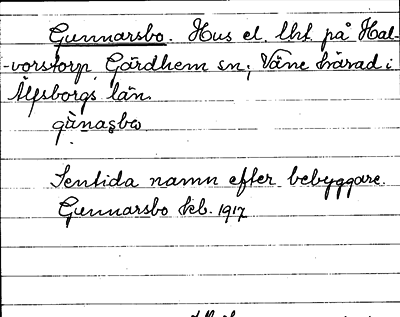 Gunnarsbo. Hus el. lht på Hal-
-vorstorp, Gärdhem sn; Väne härad i
Älfsborgs län
gùnaşbω
Sentida namn efter bebyggare.
Gunnarsbo kb. 1917